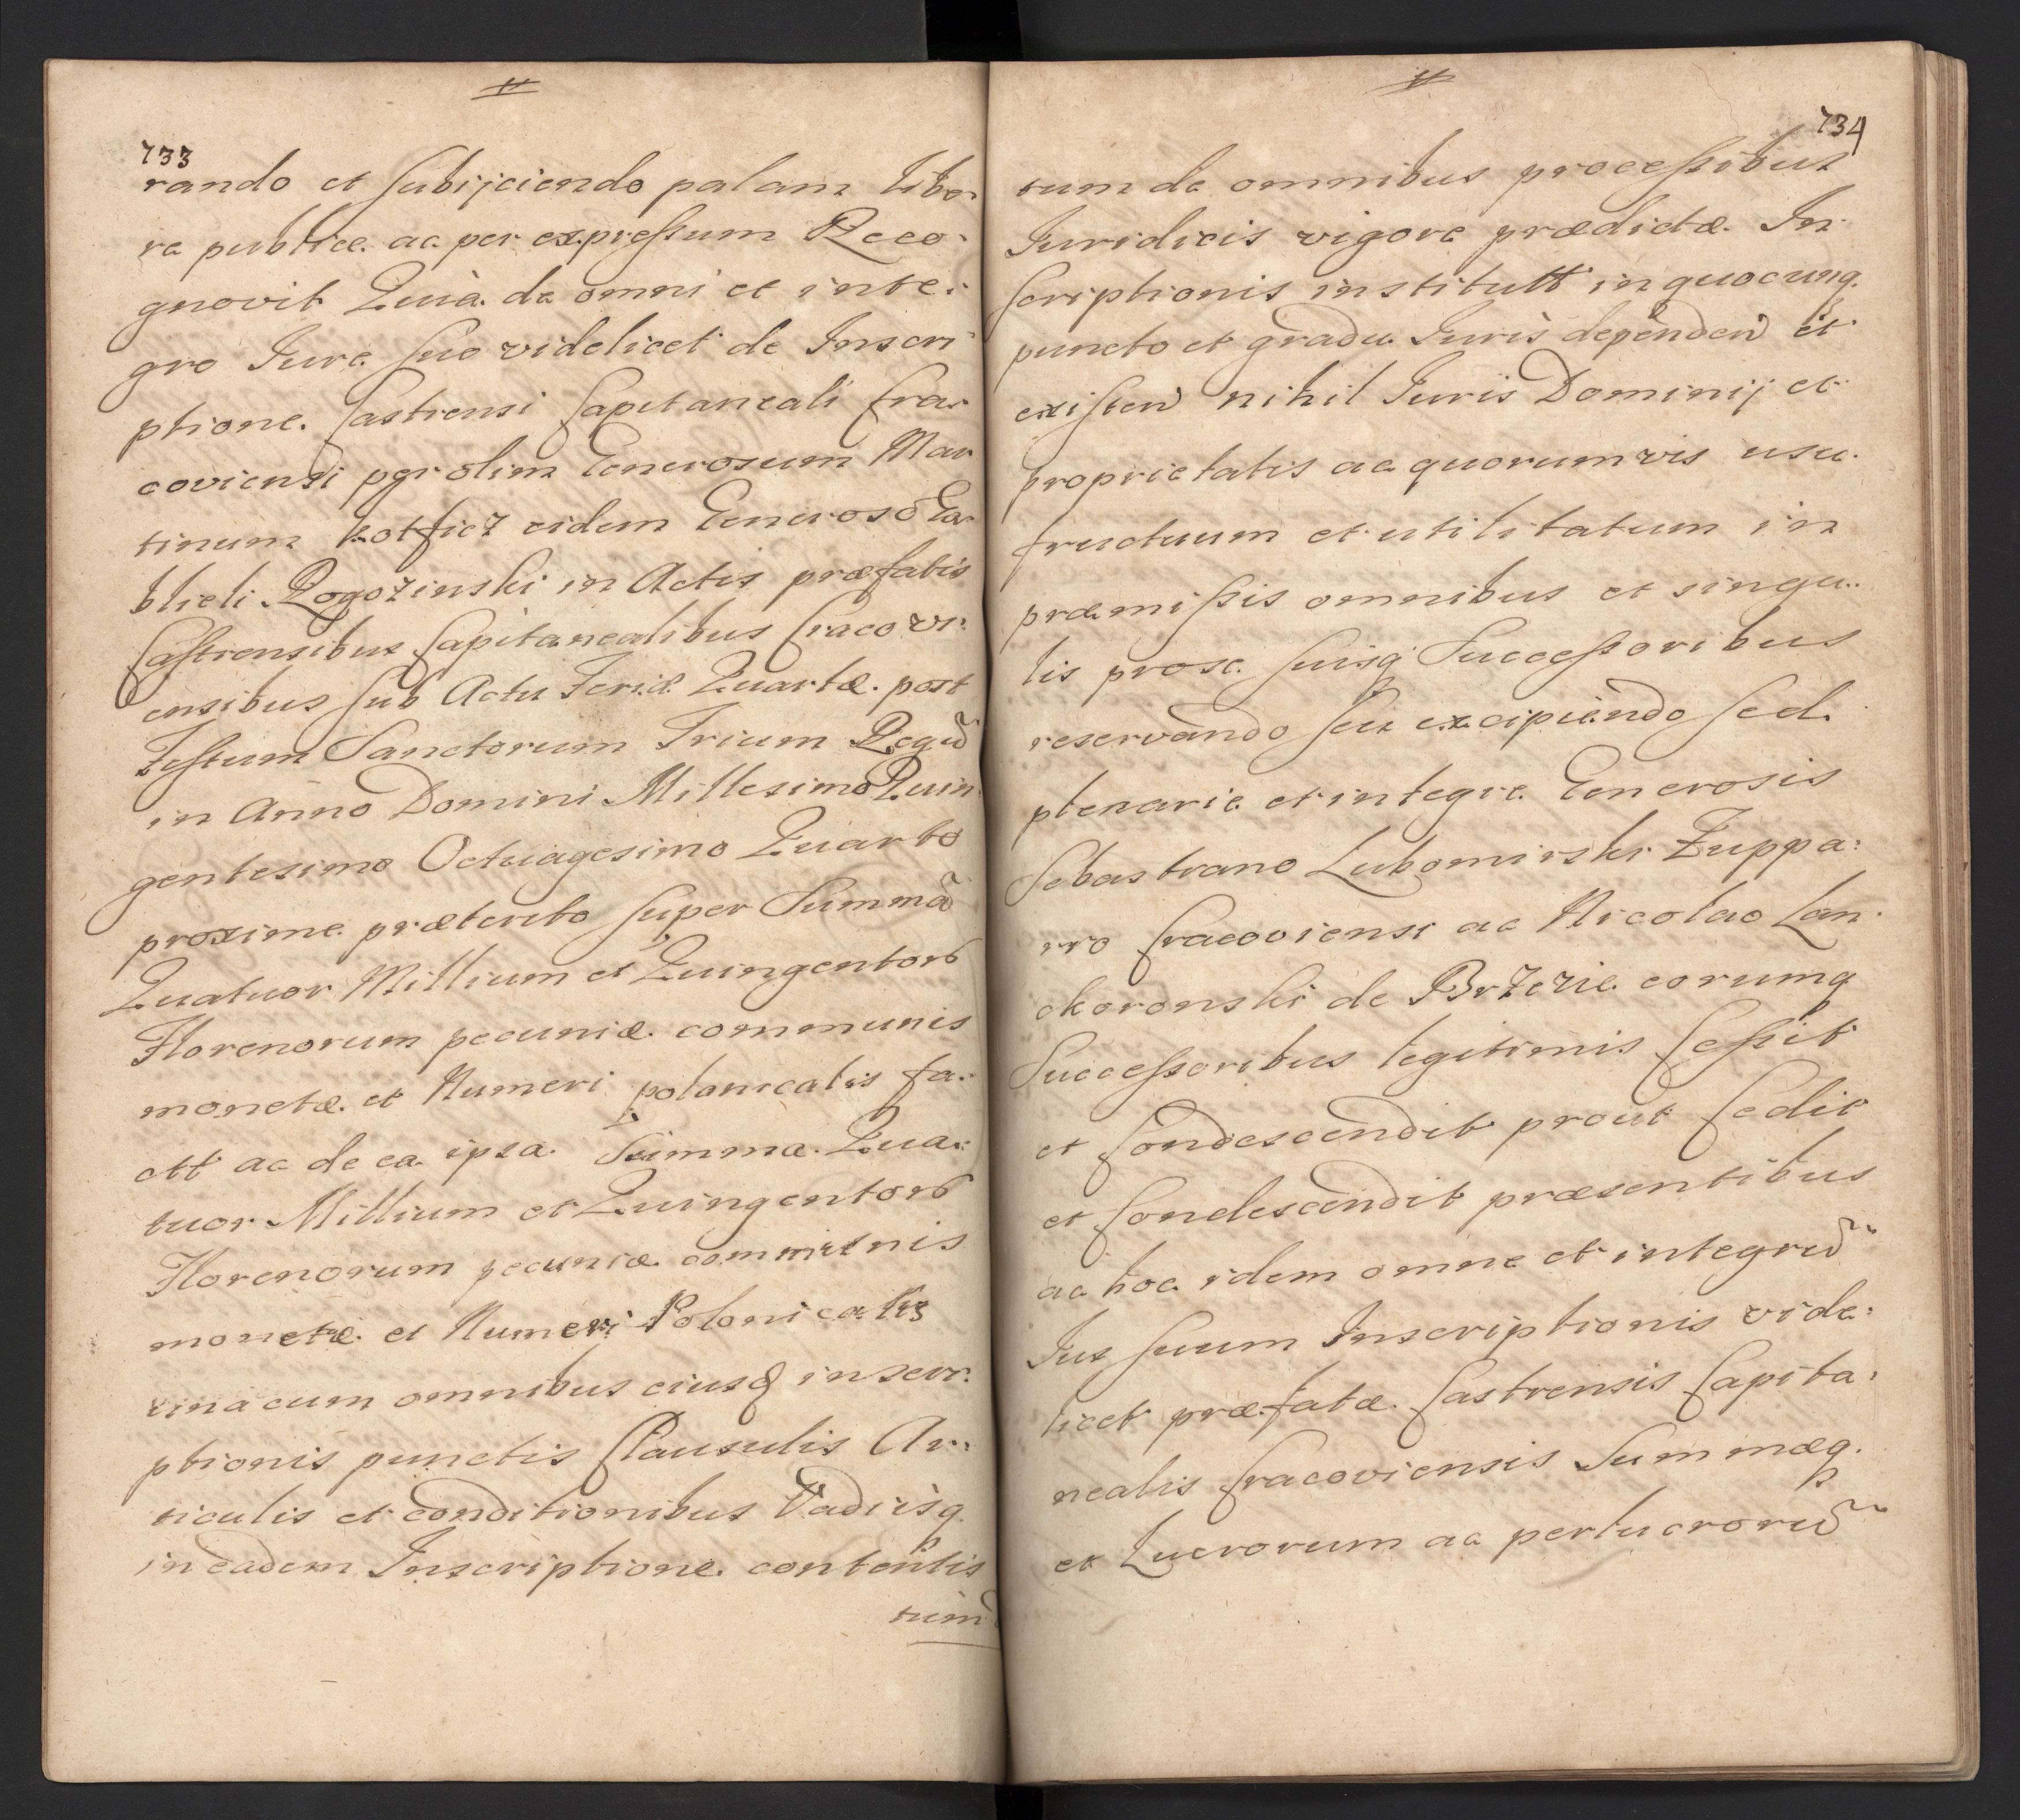 733
rando et subijciendo palam libe-
re publice ac per expressum Reco-
gnovit Quià de omni et inte-
gro Iure suo videlicet de Inscri-
ptione Castrensi Capitaneali Cra-
coviensi per olim Generosum Mar
tinum eidem Generosô Ga-
blieli Rogozinski in Actis præfatis
Castrensibus Capitanealibus Cracovi-
ensibus sub Actu Feriæ Quartæ post
Festum Sanctorum Trium Regũ
in Anno Domini Millesimo Quin-
gentesimo Octuagesimo Quarto
proxime præterito super Summã
Quatuor Millium et Quingentorũ
Florenorum pecuniæ communis
monetæ et Numeri polonicalis fa-
ctt ac de ea ipsa Summa Qua-
tuor Millium et Quingentorũ
Florenorum pecuniæ communis
monetæ et Numeri Polonicalis
unà cum omnibus eiusq inscri-
ptionis punctis Clausulis Ar-
ticulis et conditionibus Vadiisq
in eadem Inscriptione contentis
tum
734
tum de omnibus processibus
Iuridicis vigore prædictæ In-
scriptionis institutt in quocunq
puncto et gradu Iuris dependeñ et
existeñ nihil Iuris Dominij et
proprietatis ac quorumvis usu-
fructuum et utilitatum in
præmissis omnibus et singu-
lis pro se suisq Successoribus
reservando seu excipiendo sed
plenarie et integre Generosis
Sebastiano Lubomirski Zuppa-
rro Cracoviensi ac Nicolao Lan-
ckoronski de Brzezie eorumq
Successoribus legitimis Cessit
et Condescendit prout Cedit
et Condescendit præsentibus
ac hoc idem omne et integrũ
Ius suum Inscriptionis vide-
licet præfatæ Castrensis Capita-
nealis Cracoviensis Summæq
et Lucrorum ac perlucrorũ